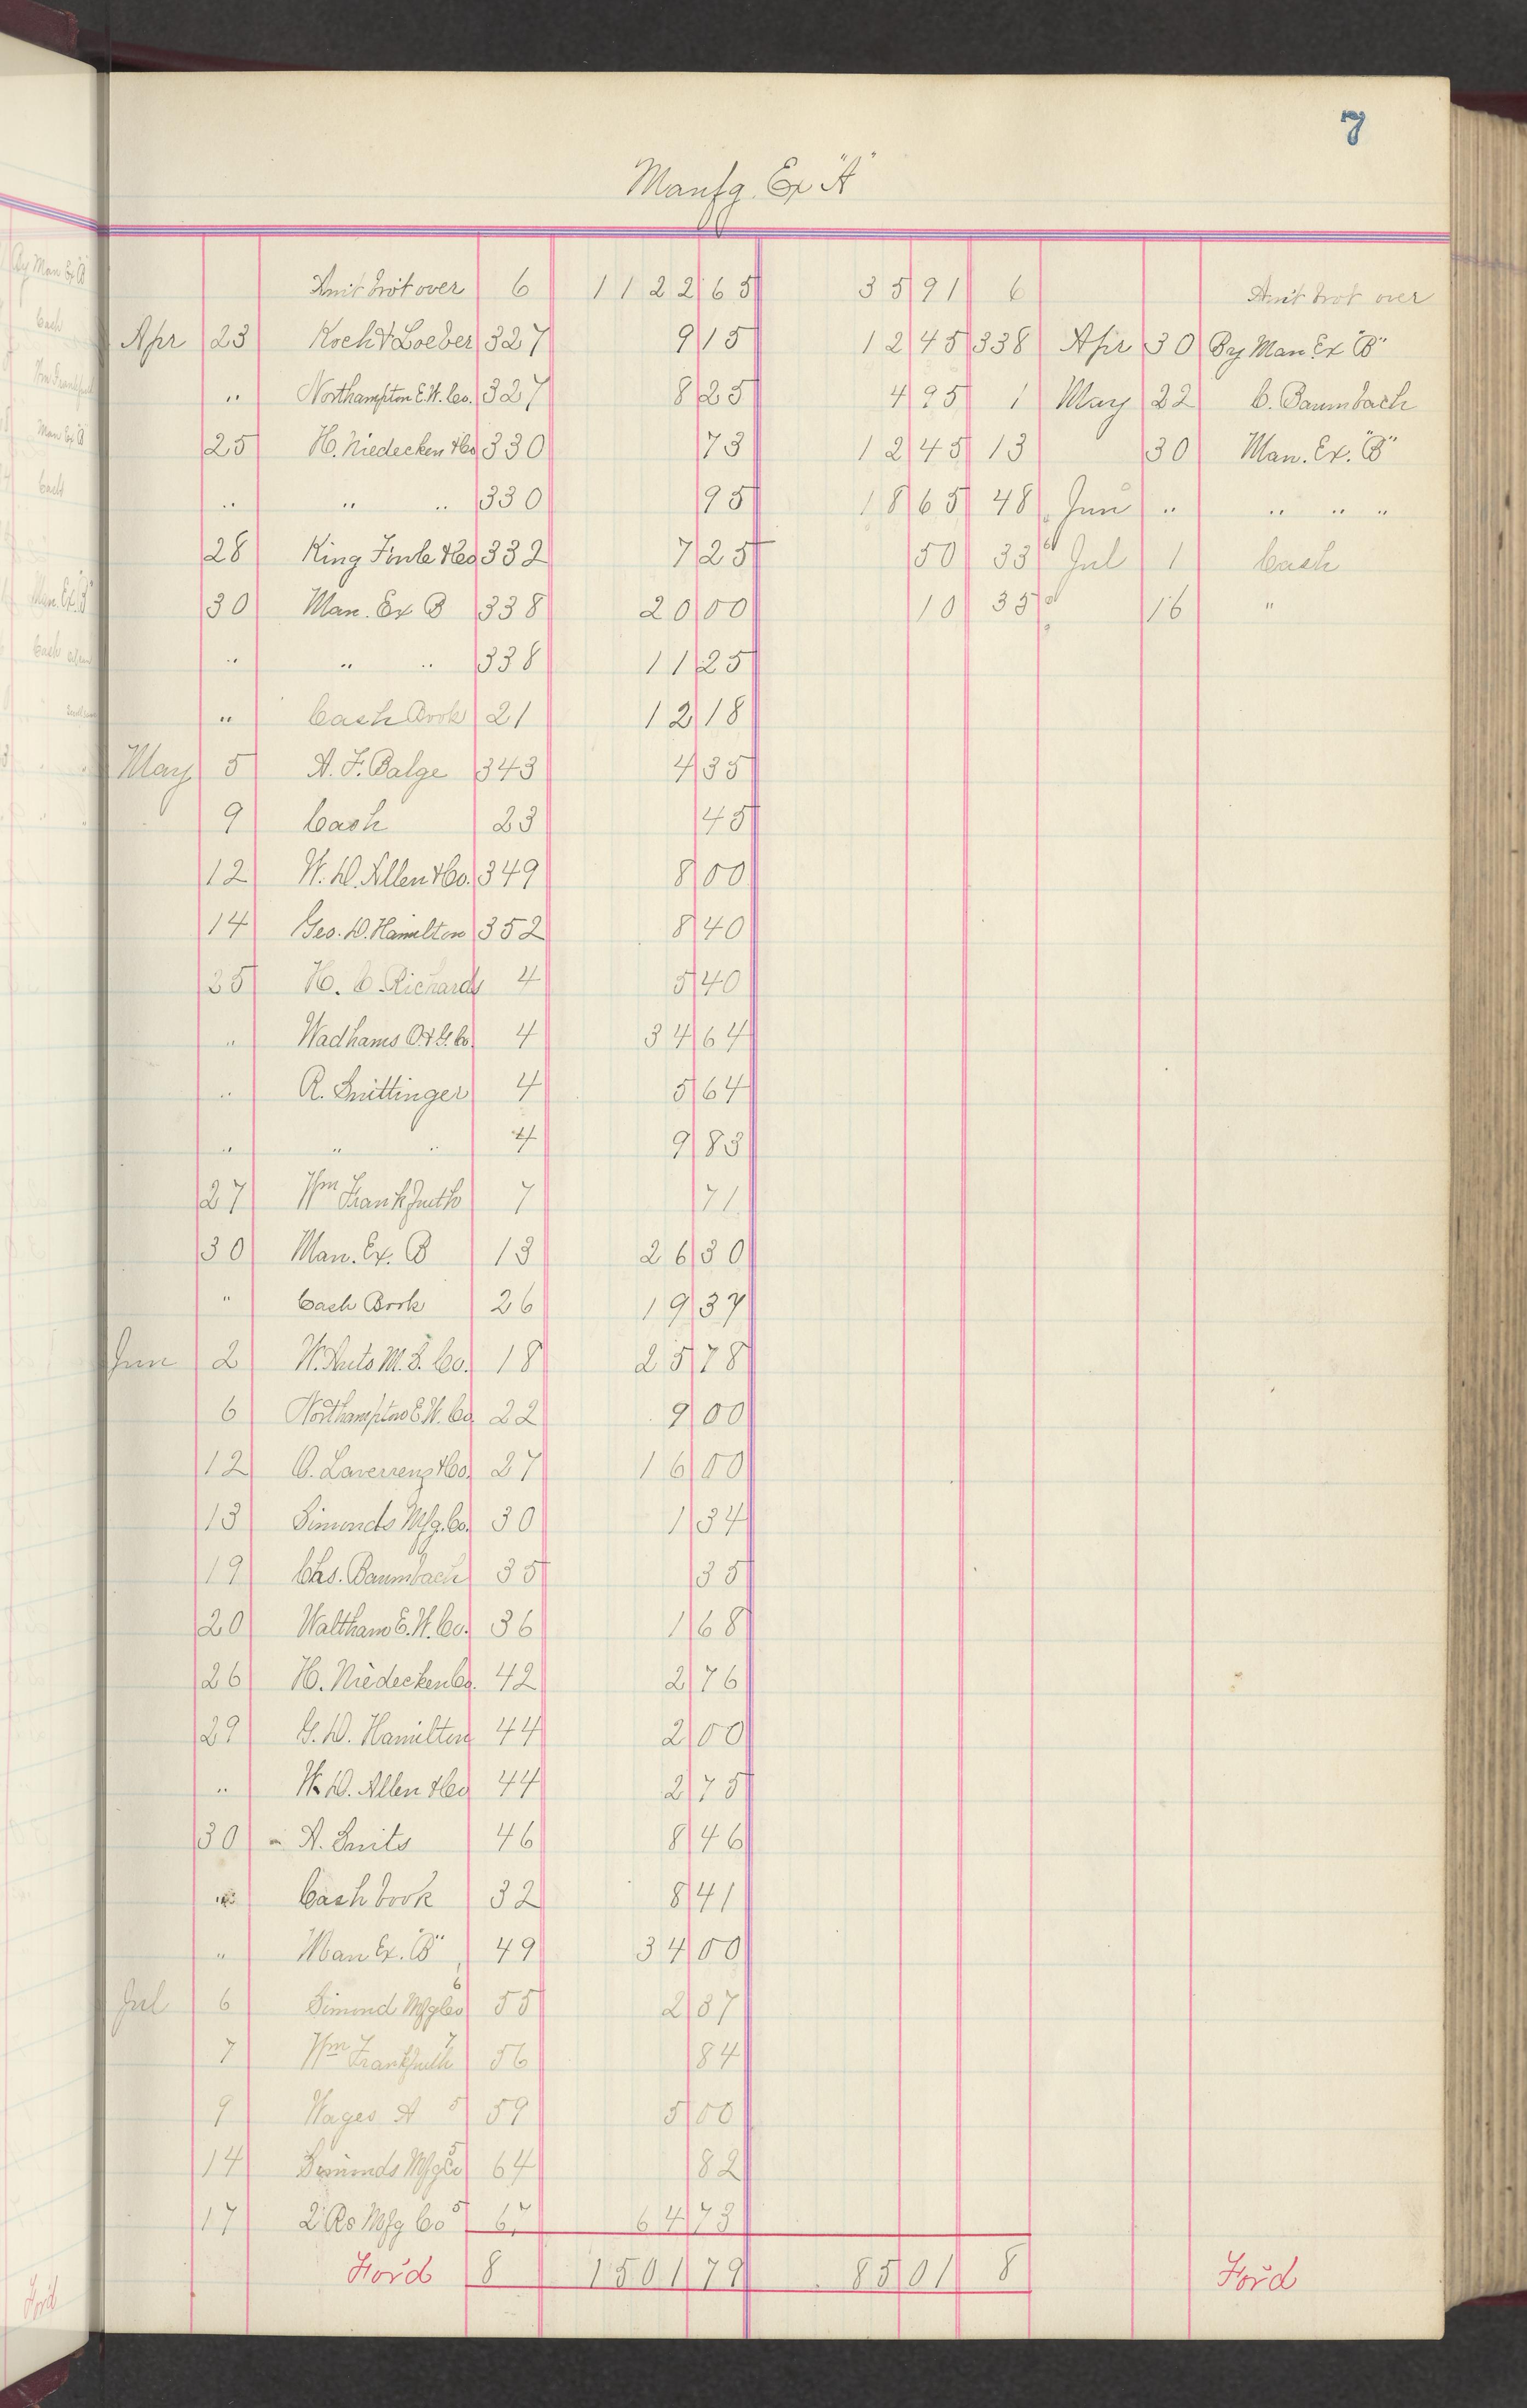 7
Manfg. Ex "A"
Amt brôt over 6 1122 65 35 91 6 Amt brot over
Apr 23 Koch & Loeber 327 9 15 12 45 338 Apr 30 By Man Ex "B"
" Northampton E.W. Co. 327 8 25 4 95 1 May 22 C. Baumbach
25 H. Niedecken & Co 330 73 12 45 13 30 Man. Ex. "B"
" " " 330 95 18 65 48 Jun " " " "
28 King Fowle & Co 332 7 25 50 33 Jul 1 Cash
30 Man. Ex B 338 20 00 10 35 16 "
" " " 338 11 25
" Cash Book 21 12 18
May 5 A. F. Balge 343 4 35
9 Cash 23 45
12 W. D. Allen & Co. 349 8 00
14 Geo. D. Hamilton 352 8 40
25 H. C. Richards 4 5 40
" Wadhams O. & G. Co. 4 34 64
" R. Snittinger 4 5 64
" " " 4 9 83
27 Wm Frankfurth 7 71
30 Man. Ex. B 13 26 30
" Cash Book 26 19 37
Jun 2 W. Auto M. S. Co. 18 25 78
6 Northampton E.W. Co. 22 9 00
12 O. Laverrenz & Co. 27 16 00
13 Simonds Mfg. Co. 30 1 34
19 Chs. Baumbach 35 35
20 Waltham E.W. Co. 36 1 68
26 H. Niedecken Co. 42 2 76
29 G. D. Hamilton 44 2 00
" W. D. Allen & Co 44 2 75
30 A. Smits 46 8 46
" Cash book 32 8 41
" Man Ex. "B" 49 34 00
Jul 6 Simond Mfg Co 6 55 2 37
7 Wm Frankfurth 7 56 84
9 Wages A 5 59 5 00
14 Simonds Mfg Co 5 64 82
17 Mfg Co 5 64 73
For'd 8 1501 79 85 01 8 For'd